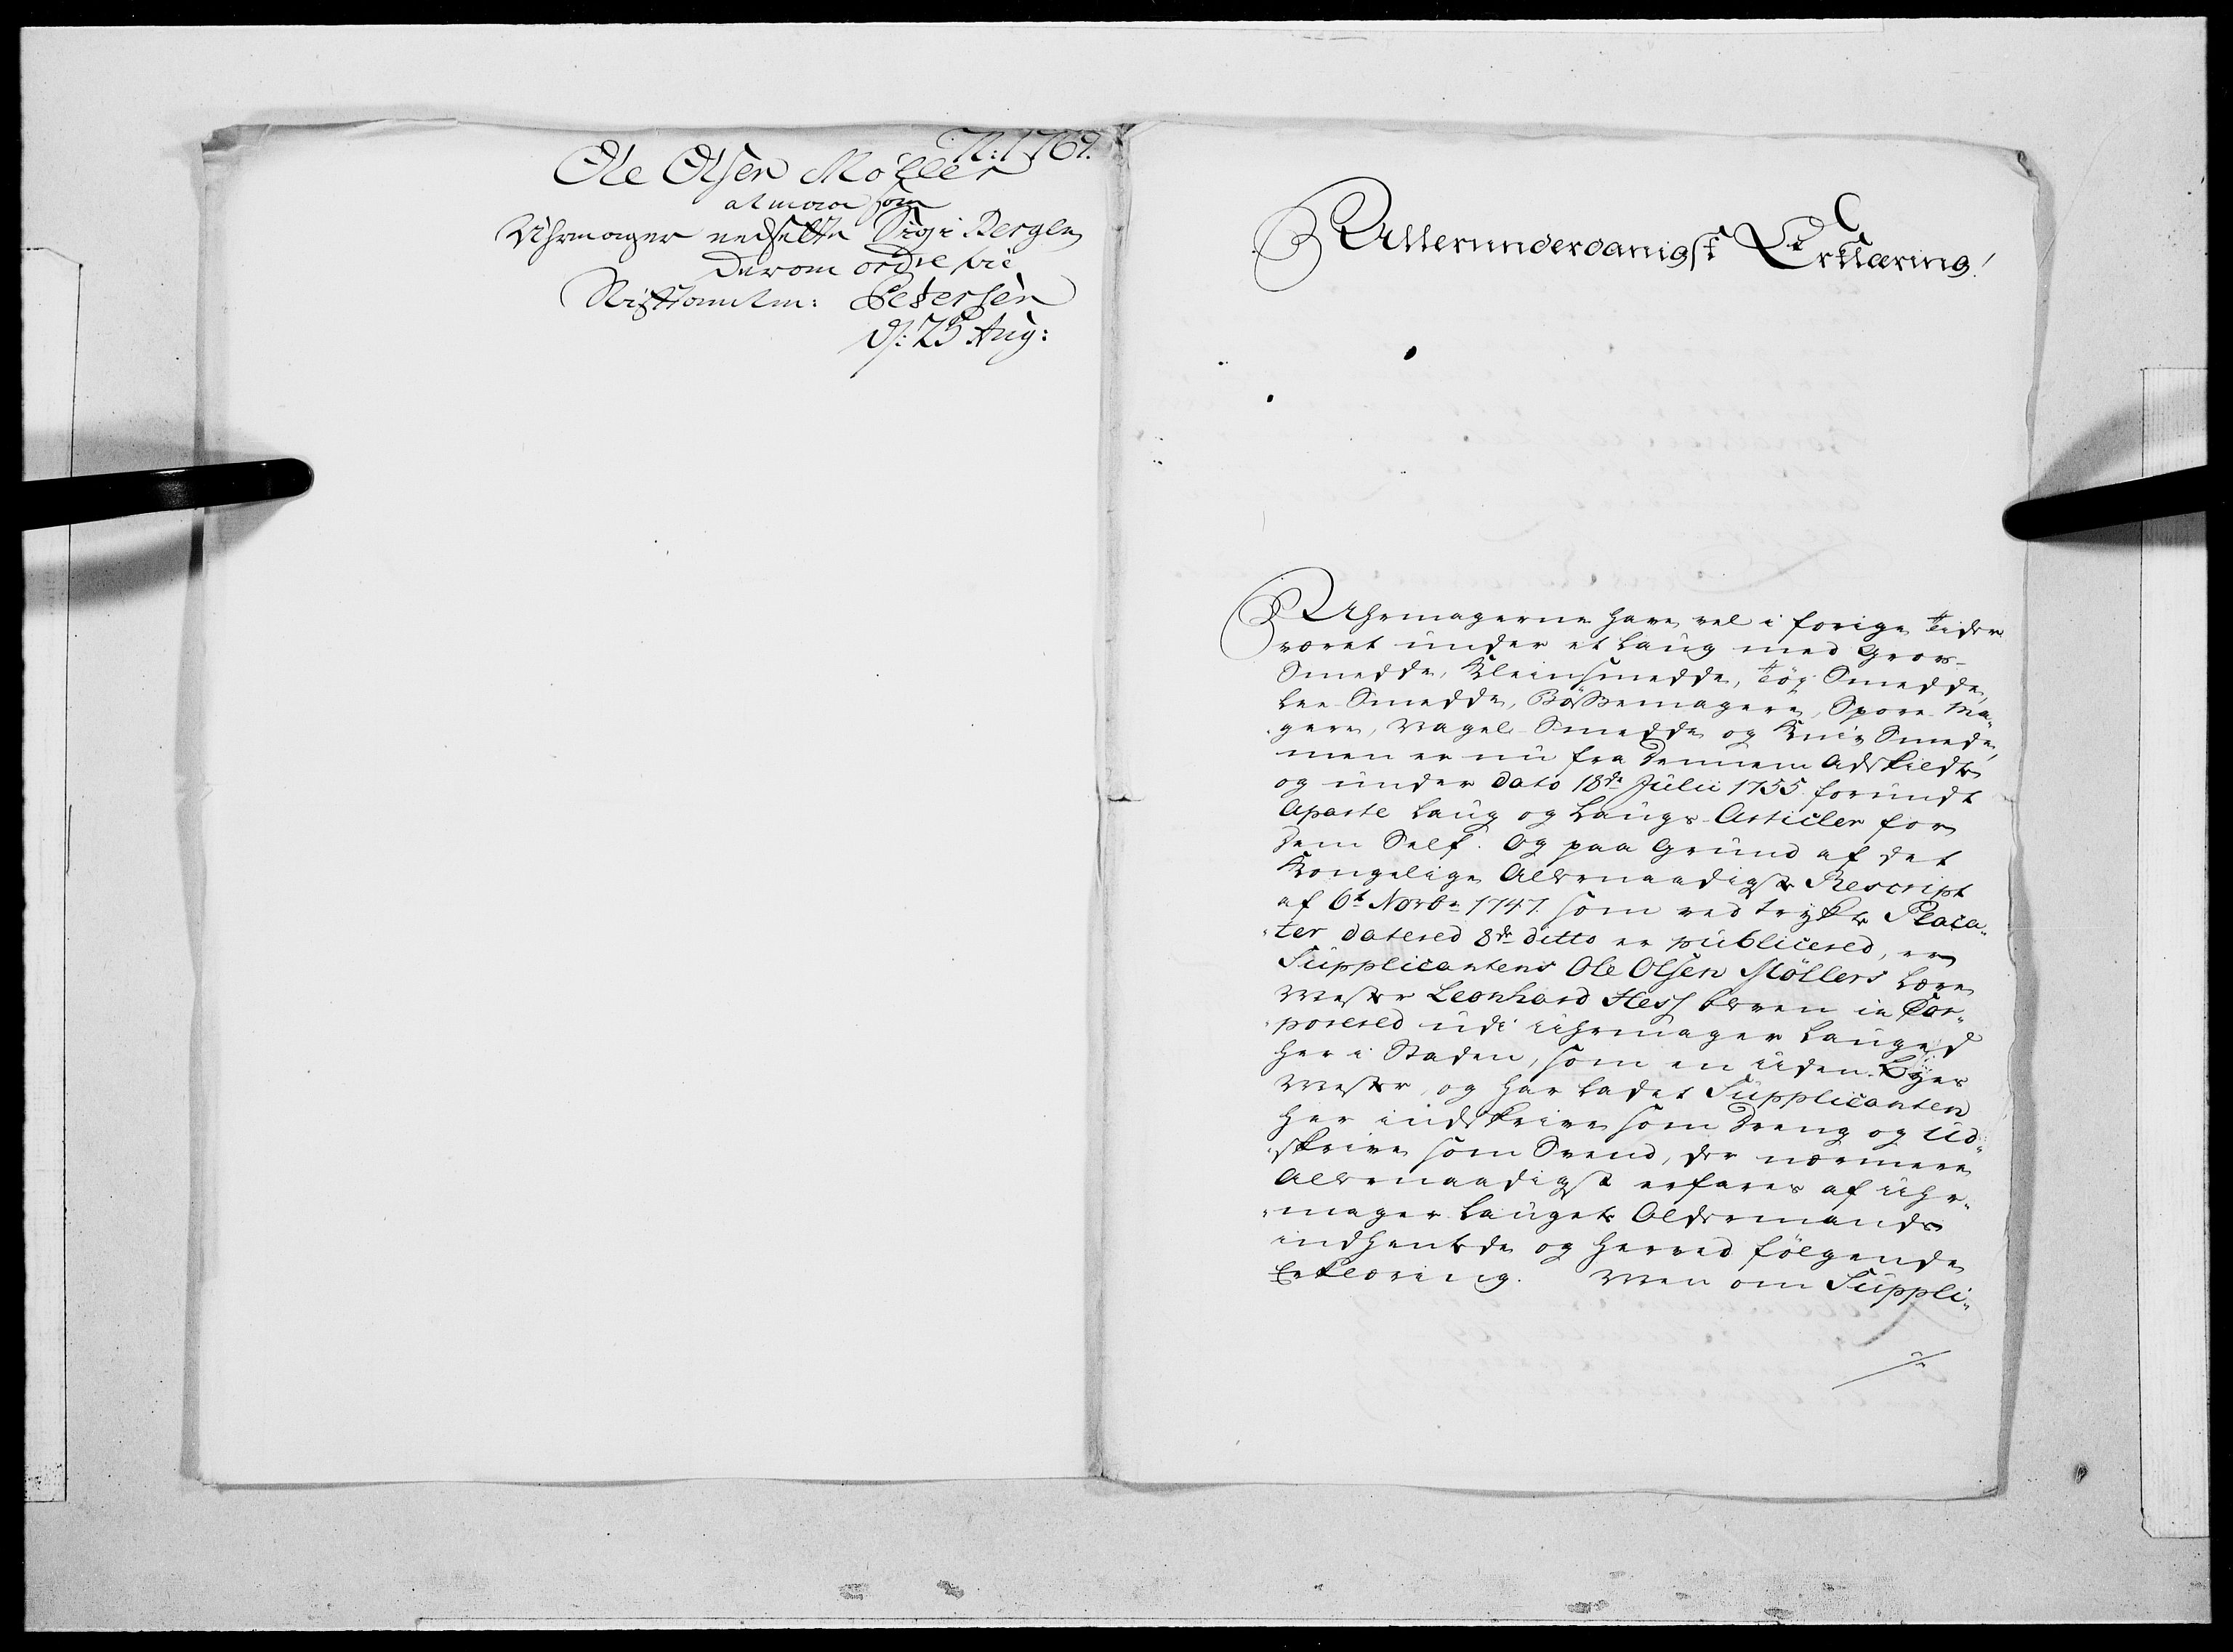 N: 1769.
Ole Olsen Møller
at maae som
Uhrmager nedsætte Sig i Bergen
Derom ordre til
Stiftamtm: Petersen
d: 25 Aug:
Allerunderdanigst Erklæring!
Uhrmagerne have vel i forige Tider
været under et Laug med Grov-
Smedde, Kleinsmedde, Tøy Smedde,
Lee-Smedde, Bøssemagere, Spore Ma„
„gere, Nagel-Smedde og Kniv Smede,
men er nu fra Dennem Adskildte
og under Dato 18de Julii 1755 forundt
Aparte Laug og Laugs-Articler for
Dem Self. Og paa Grund af det
Kongelige Allernaadigste Rescript
af 6t Novbr 1747. som ved trykte Placa„
„ter Datered 8de ditto er publicered, er
Supplicantens Ole Olsen Møllers Lære
Mester Leonhard Hess bleven in Cor„
„porered udi Uhrmager Lauged
her i Staden, som en Uden-Byes
Mester, og har ladet Supplicanten
her indskrive som Dreng og Ud„
„skrive som Svend, der nærmere
Allernaadigst erfares af Uhr„
„mager Laugets Oldermands
indhentede og herved følgende
Erklæring. Men om Suppli„